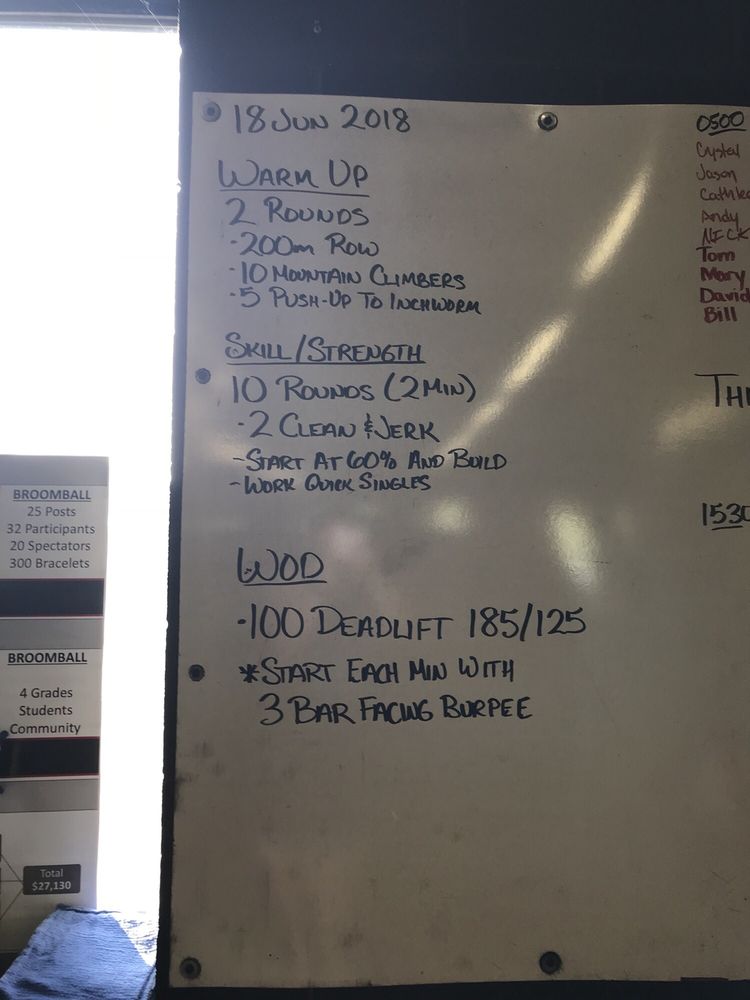 18 JUN 2018
WARM UP
2 ROUNDS
·200m ROW
·10 MOUNTAIN CLIMBERS
·5 PUSH-UP TO INCHWORM
SKILL/STRENGTH
10 ROUNDS (2MIN)
·2 CLEAN & JERK
-START AT 60% AND BUILD
-WORK QUICK SINGLES
WOD
·100 DEADLIFT 185/125
*START EACH MIN WITH
3 BAR FACING BURPEE
0500
Crystal
Jason
Andy
NICK
Tom
Mary
David
Bill
1530
BROOMBALL
25 Posts
32 Participants
20 Spectators
300 Bracelets
BROOMBALL
4 Grades
Students
Community
Total
$27,130